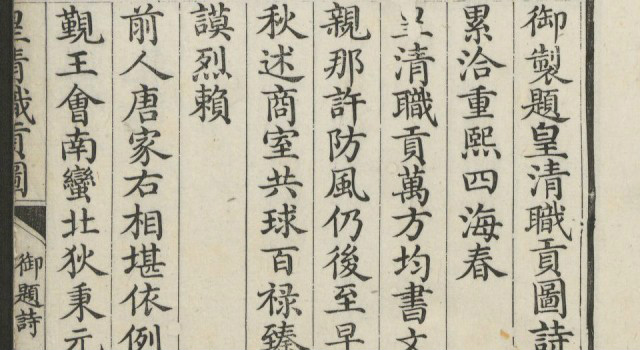 御製題皇清職貢圖詩
累洽重熙四海春
皇清職貢萬方均書文
親那許防風仍後至早
秋述商室共球百禄臻
謨烈賴
前人唐家右相堪依例
覲王會南蠻北狄秉元
皇清職貢圖
御題詩